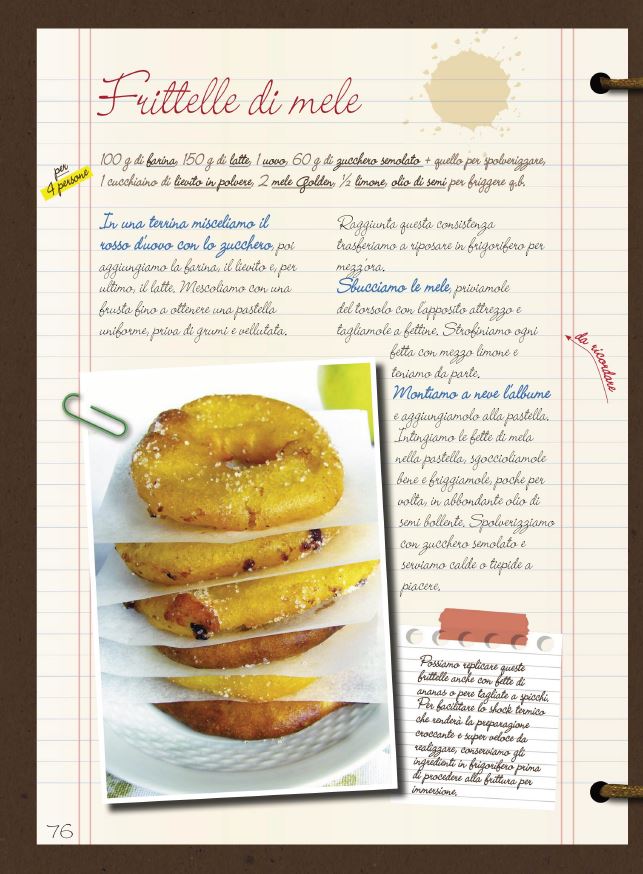 Frittelle di mele
per
4 persone
100 g di farina, 150 g di latte, 1 uovo, 60 g di zucchero semolato + quello per spolverizzare,
1 cucchiaino di lievito in polvere, 2 mele Golden, ½ limone, olio di semi per friggere q.b.
In una terrina misceliamo il
rosso d'uovo con lo zucchero, poi
aggiungiamo la farina, il lievito e, per
ultimo, il latte. Mescoliamo con una
frusta fino a ottenere una pastella
uniforme, priva di grumi e vellutata.
Raggiunta questa consistenza
trasferiamo a riposare in frigorifero per
mezz'ora.
Sbucciamo le mele, priviamole
del torsolo con l'apposito attrezzo e
tagliamole a fettine. Strofiniamo ogni
fetta con mezzo limone e
teniamo da parte.
Montiamo a neve l'albume
e aggiungiamolo alla pastella.
Intingiamo le fette di mela
nella pastella, sgoccioliamole
bene e friggiamole, poche per
volta, in abbondante olio di
semi bollente. Spolverizziamo
con zucchero semolato e
serviamo calde o tiepide a
piacere.
da ricordare
Possiamo replicare queste
frittelle anche con fette di
ananas o pere tagliate a spicchi.
Per facilitare lo shock termico
che renderà la preparazione
croccante e super veloce da
realizzare, conserviamo gli
ingredienti in frigorifero prima
di procedere alla frittura per
immersione.
76